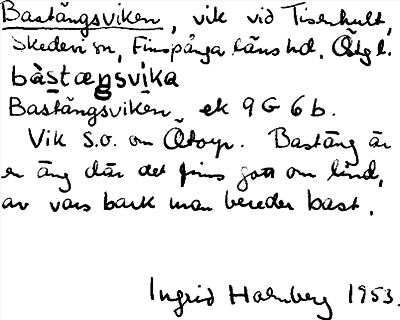 Bastängsviken, vik vid Tisenhult,
Skedevi sn, Finspånga läns hd. Ötg l.
bàstæŋsvika
Bastängsviken, ek 9G 6b.
Vik S.o. om Ötorp. Bastäng är
en äng där det finns gott om lind,
av vars bark man bereder bast.
Ingrid Holmberg 1953.